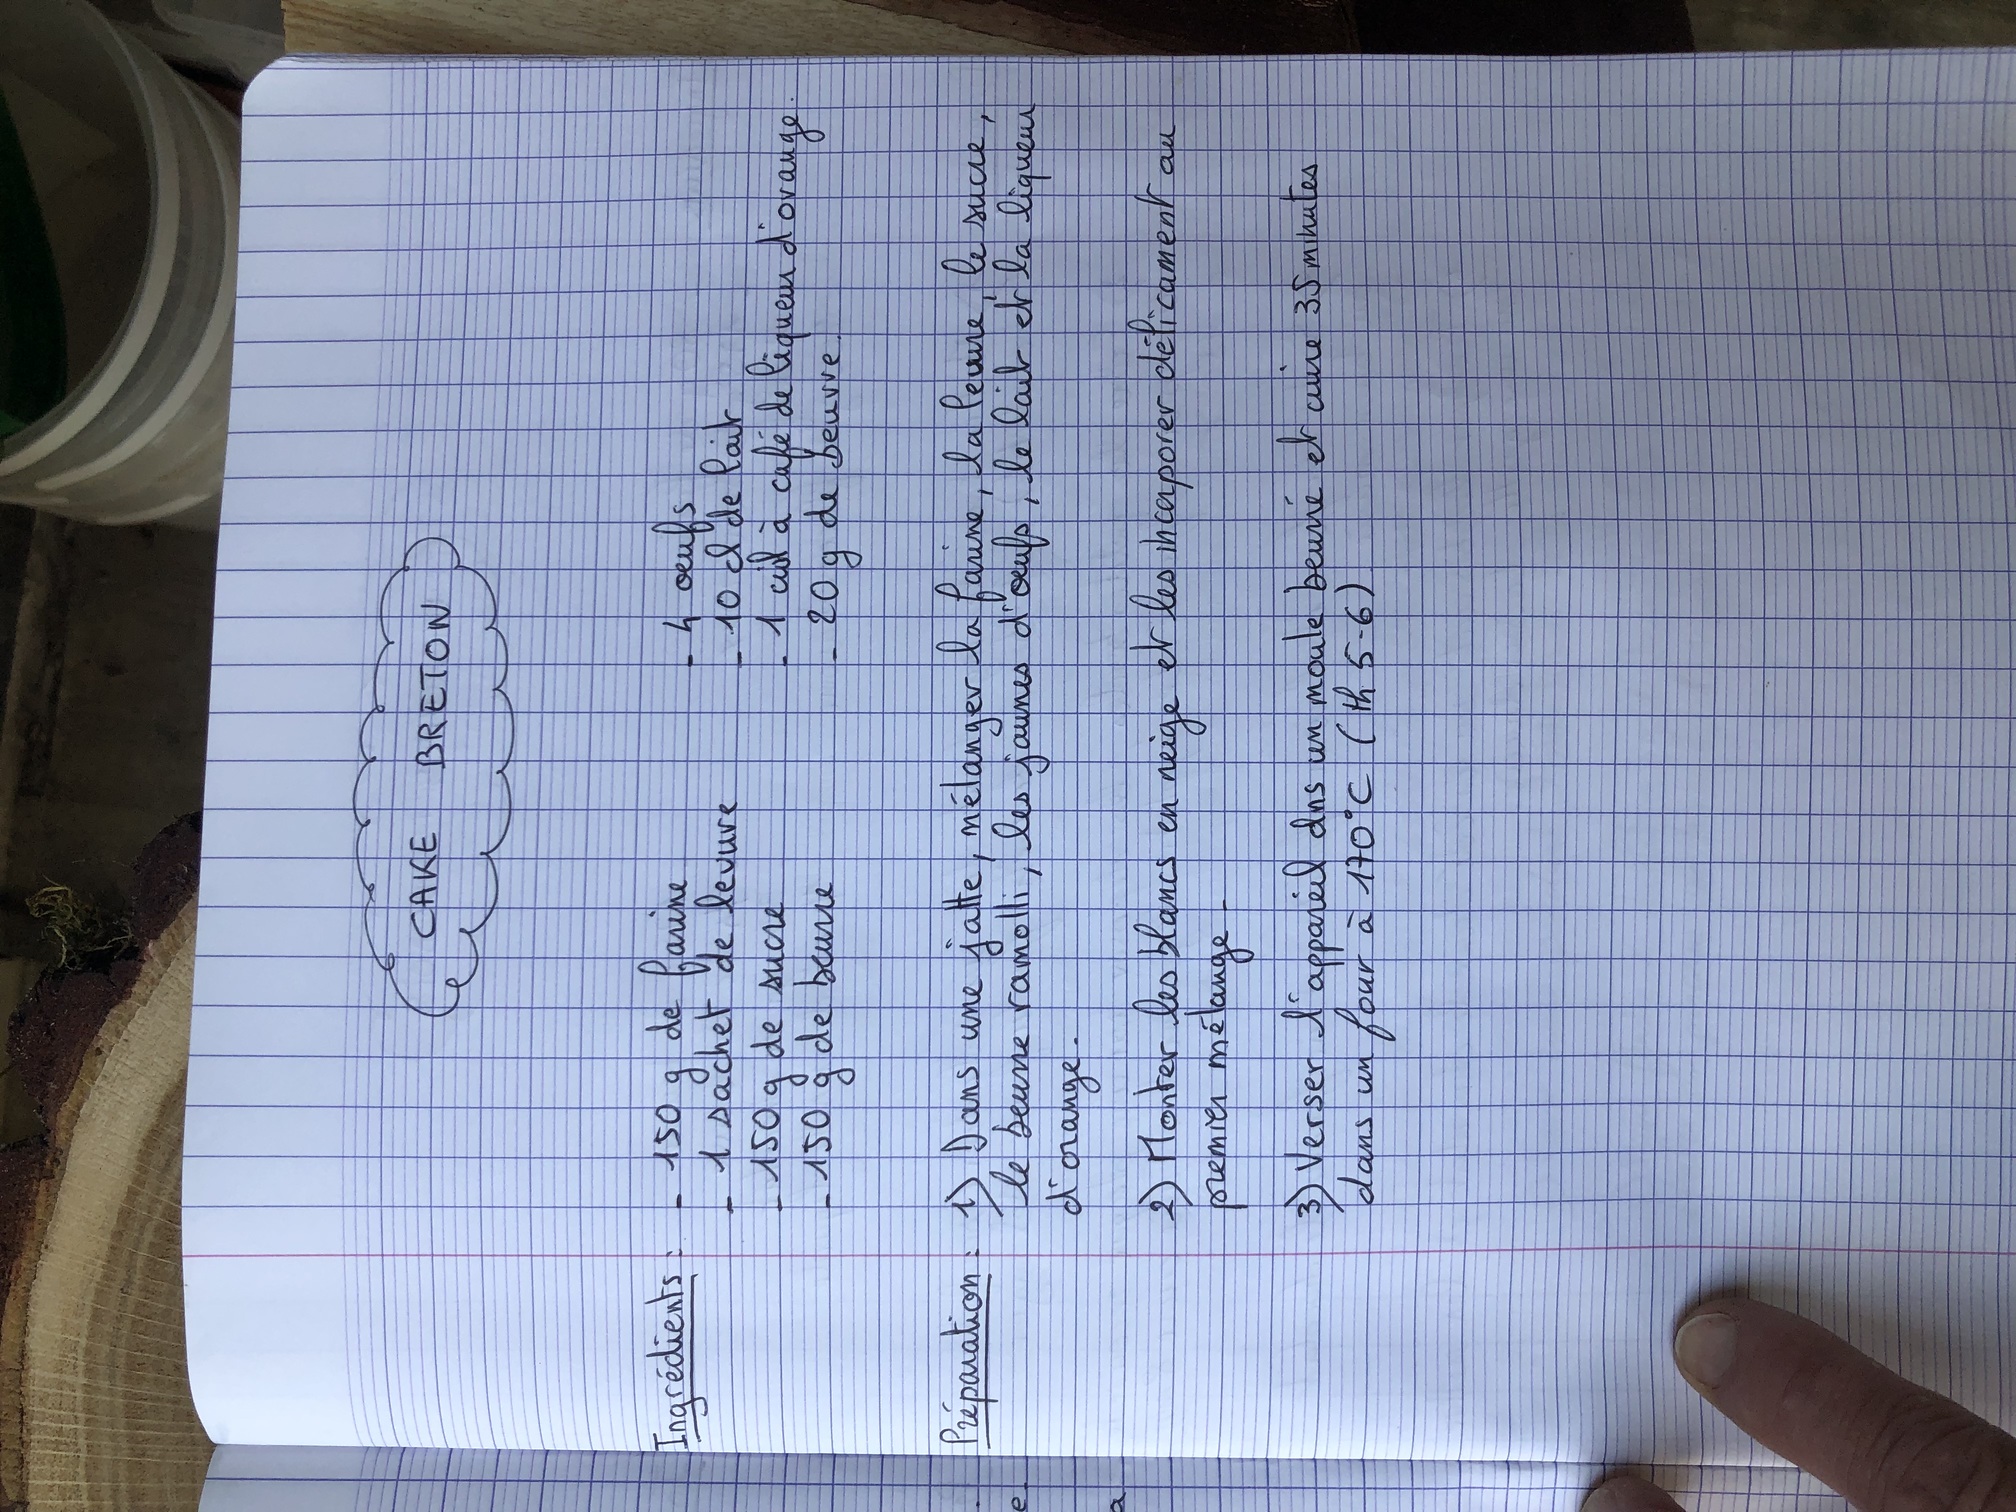 CAKE BRETON
Ingrédients : - 150 g de farine
- 1 sachet de levure
- 150 g de sucre
- 150 g de beurre
- 4 oeufs
- 10 cl de lait
- 1 cuil à café de liqueur d'orange.
- 20 g de beurre.
Préparation : 1) Dans une jatte, mélanger la farine, la levure, le sucre,
le beurre ramolli, les jaunes d'oeufs, le lait et la liqueur
d'orange.
2) Monter les blancs en neige et les incorporer délicament au
premier mélange.
3) Verser l'appareil dns un moule beurré et cuire 35 minutes
dans un four à 170°C (th 5-6)
e.
a